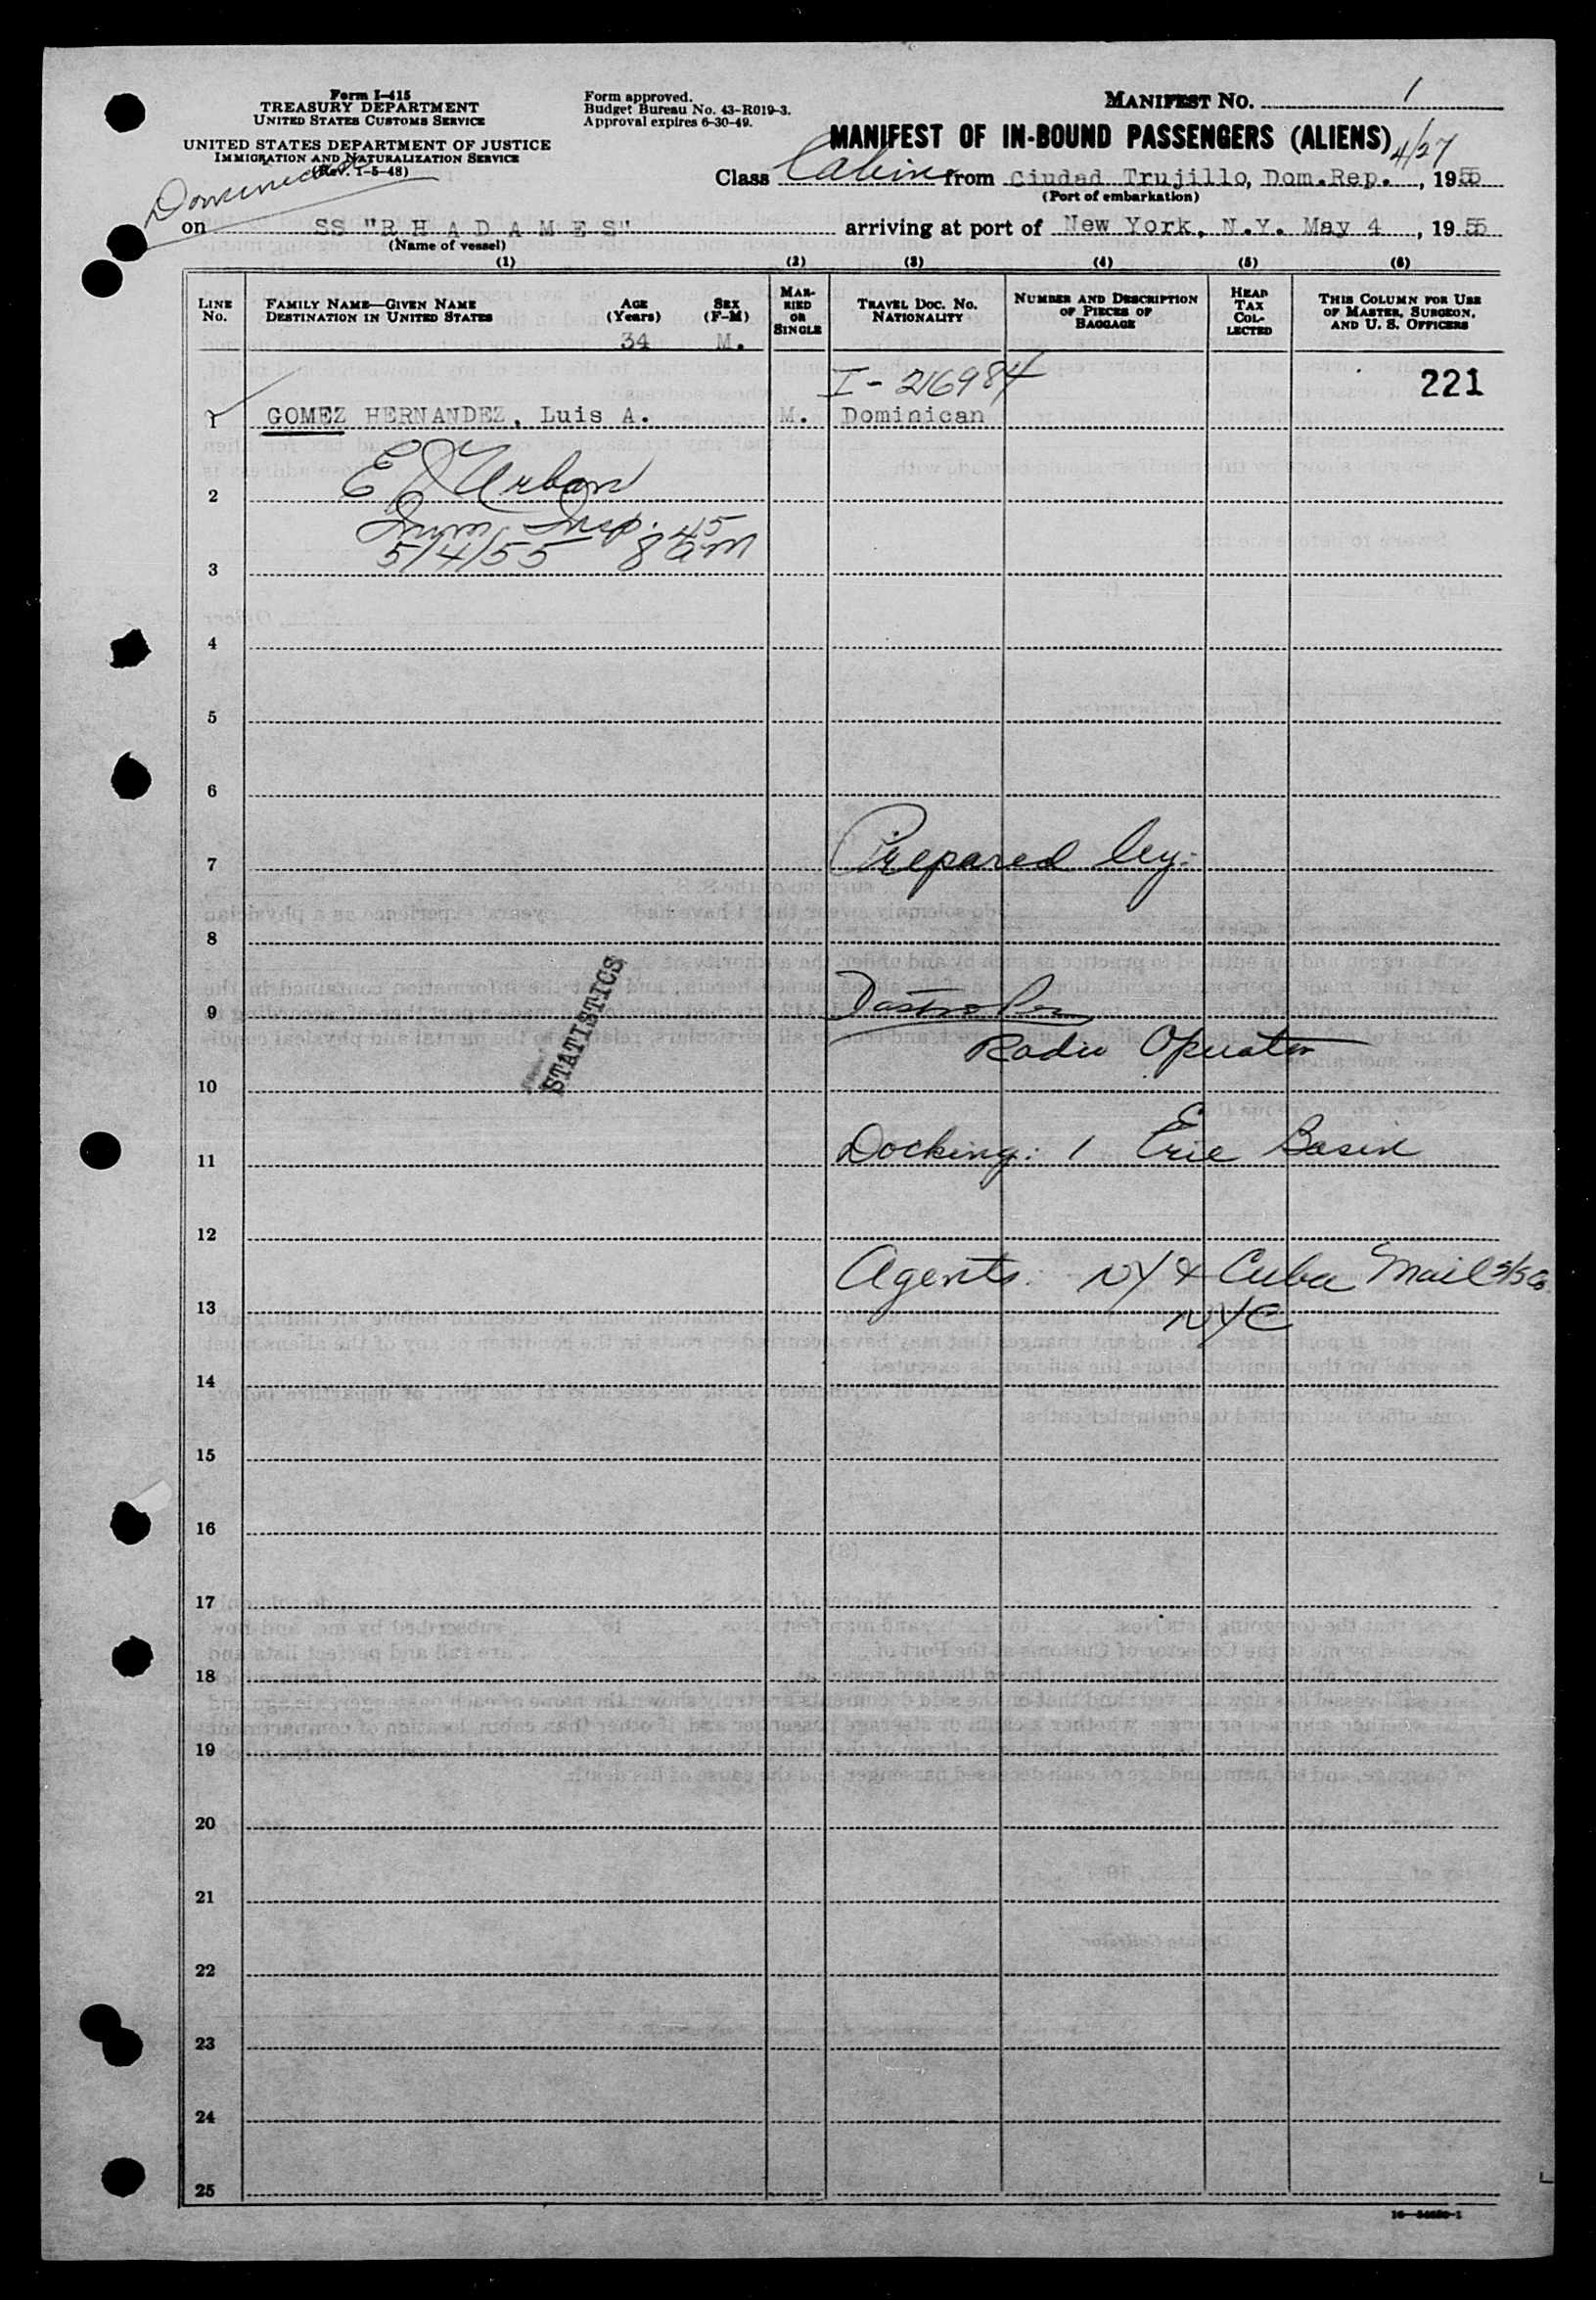 Form I-415
TREASURY DEPARTMENT
UNITED STATES CUSTOMS SERVICE
UNITED STATES DEPARTMENT OF JUSTICE
IMMIGRATION AND NATURALIZATION SERVICE
(Rev. 1-5-48)
Form approved.
Budget Bureau No. 43-R019-3.
Approval expires 6-30-49.
MANIFEST NO. 1
MANIFEST OF IN-BOUND PASSENGERS (ALIENS)
4/27
Class Cabin from Ciudad Trujillo, Dom.Rep. , 1955
(Port of embarkation)
Dominican
on SS "R H A D A M E S" arriving at port of New York, N.Y. May 4 , 1955
(Name of vessel)
(1) (2) (3) (4) (5) (6)
LINE NO.
FAMILY NAME—GIVEN NAME
DESTINATION IN UNITED STATES
AGE (Years)
SEX (F-M)
MARRIED OR SINGLE
TRAVEL DOC. NO.
NATIONALITY
NUMBER AND DESCRIPTION OF PIECES OF BAGGAGE
HEAD TAX COLLECTED
THIS COLUMN FOR USE OF MASTER, SURGEON, AND U. S. OFFICERS
34 M.
I-216984
221
1 GOMEZ HERNANDEZ, Luis A. M. Dominican
E J Urban
2
Imm Insp.
5/4/55 8 45 am
3
4
5
6
7 Prepared by:
8
9
STATISTICS
Radio Operator
10
11 Docking: 1 Erie Basin
12
Agents: NY & Cuba Mail S/S Co.
13 NYC
14
15
16
17
18
19
20
21
22
23
24
25